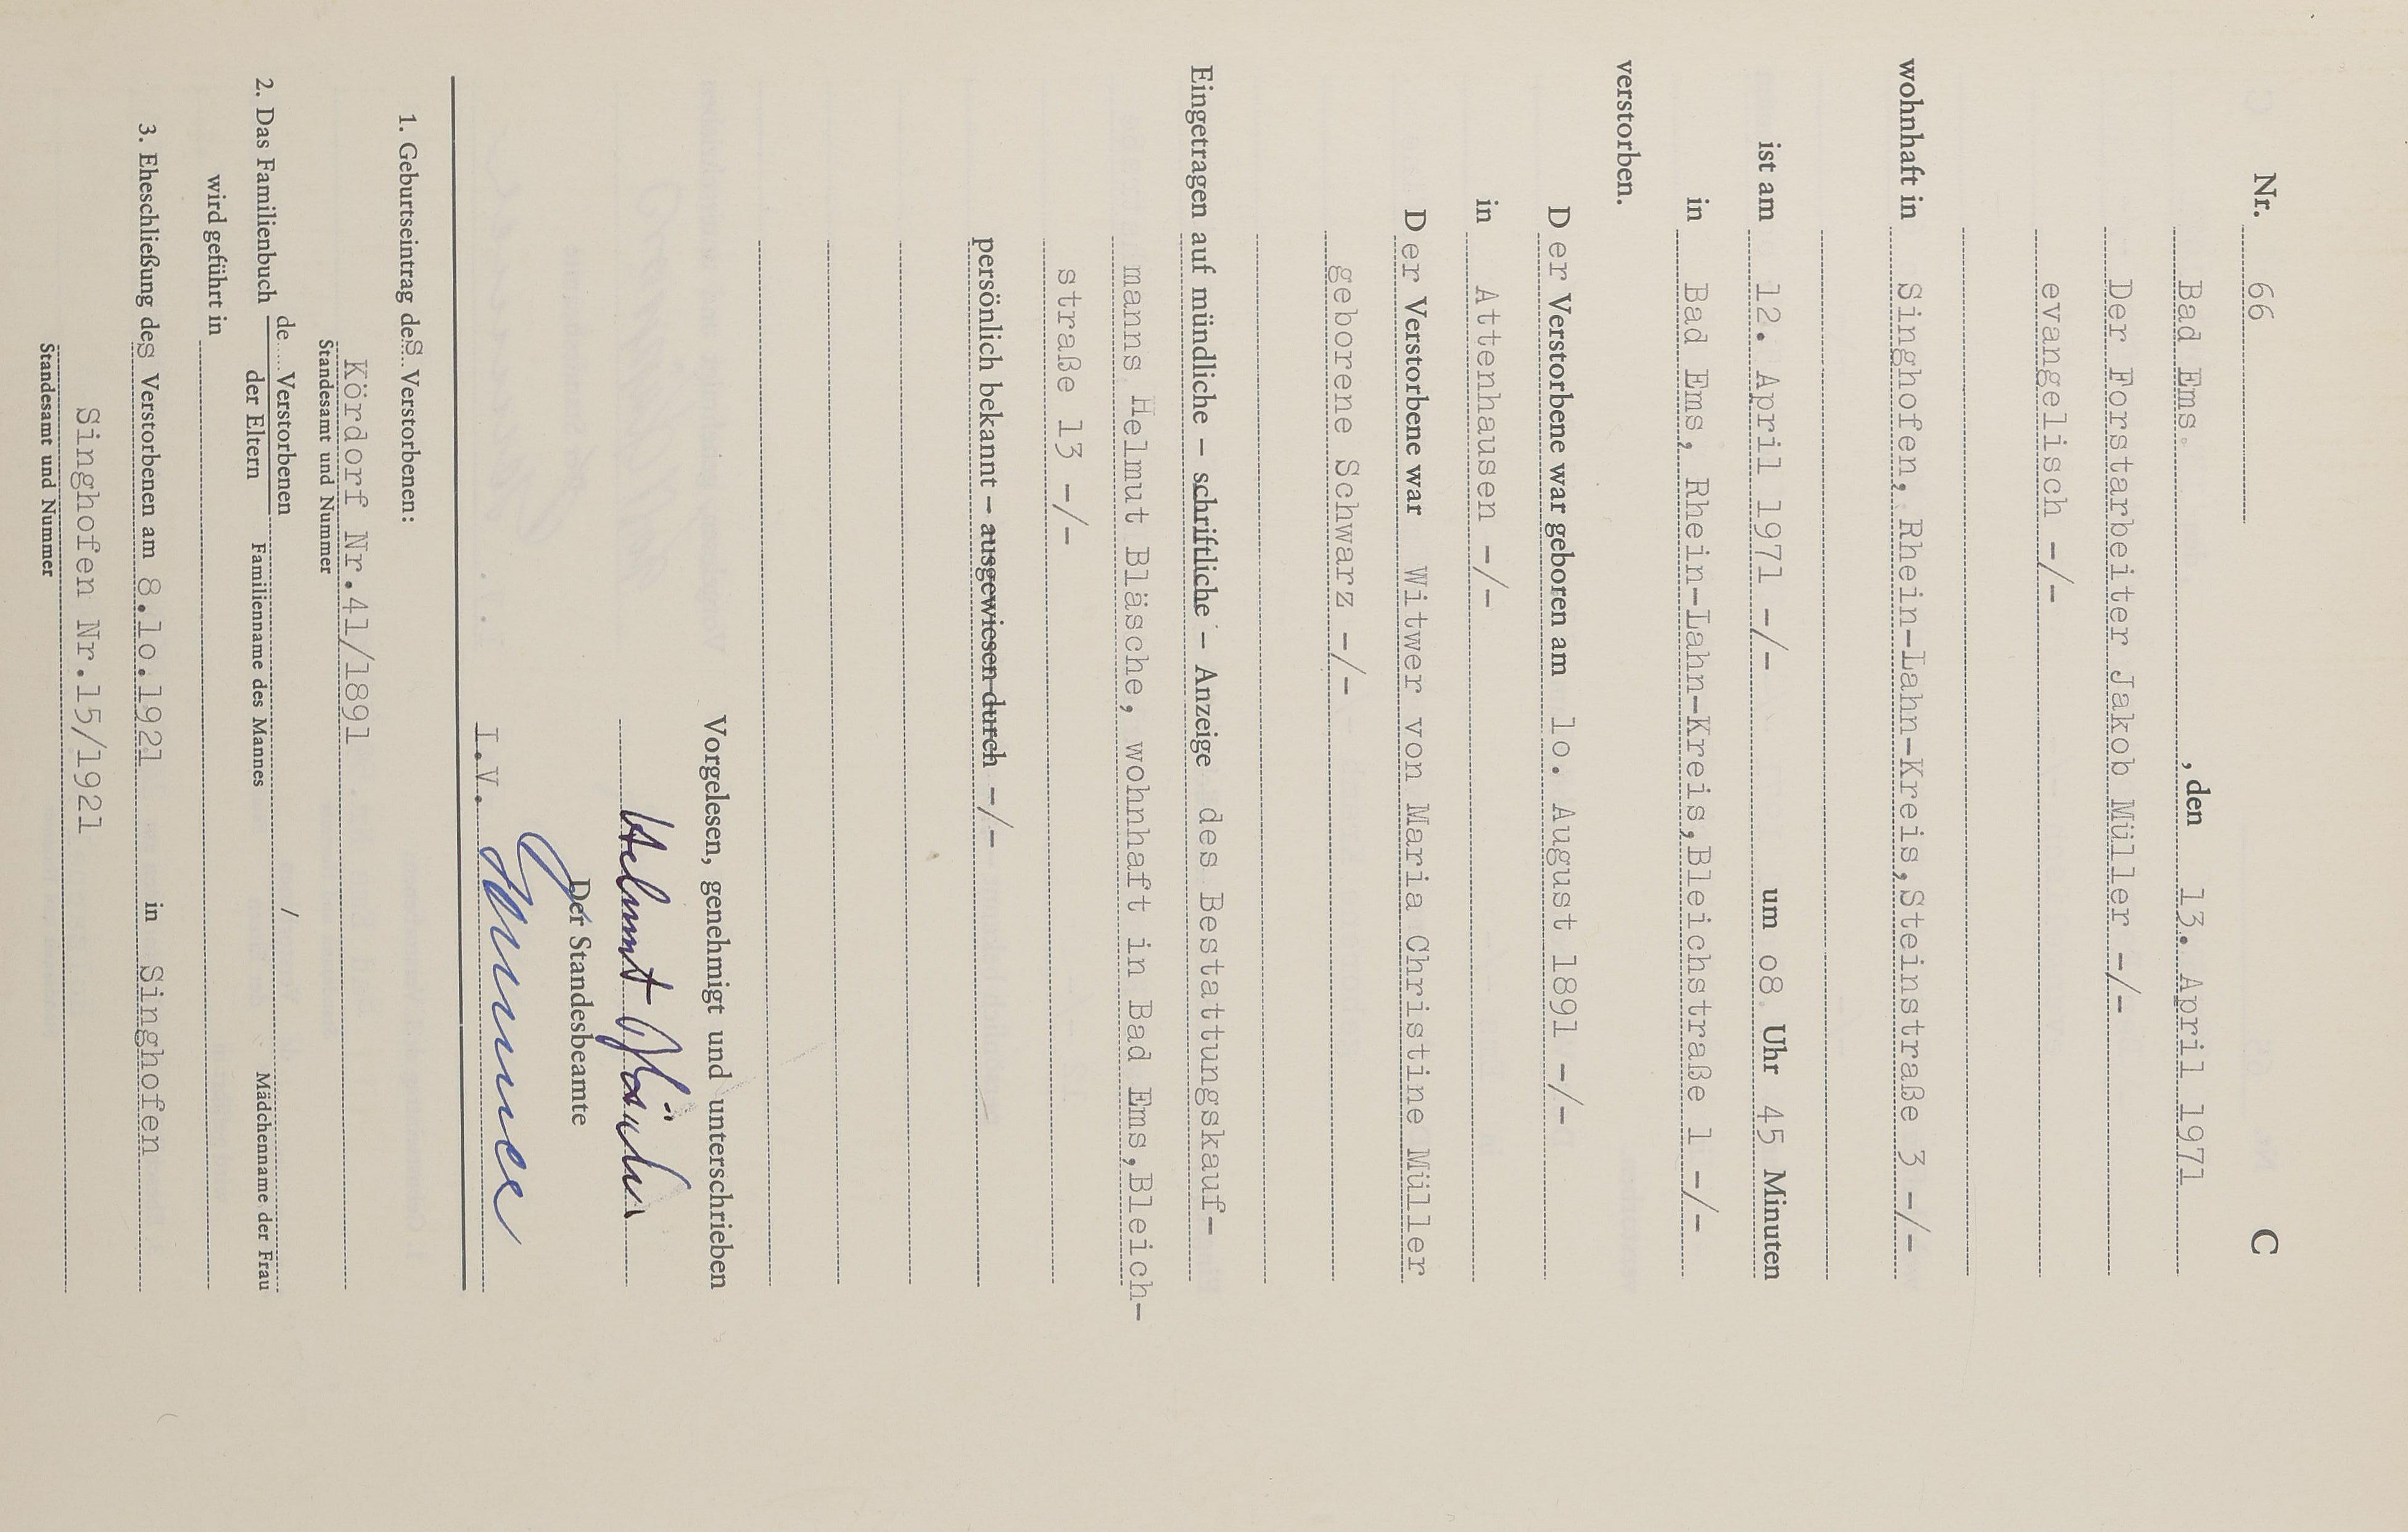 Nr. 66 C
Bad Ems , den 13. April 1971
Der Forstarbeiter Jakob Müller -/-
evangelisch -/-
wohnhaft in Singhofen, Rhein-Lahn-Kreis,Steinstraße 3 -/-
ist am 12. April 1971 -/- um o8 Uhr 45 Minuten
in Bad Ems, Rhein-Lahn-Kreis,Bleichstraße 1 -/-
verstorben.
Der Verstorbene war geboren am lo. August 1891 -/-
in Attenhausen -/-
Der Verstorbene war Witwer von Maria Christine Müller
geborene Schwarz -/-
Eingetragen auf mündliche – schriftliche – Anzeige des Bestattungskauf-
manns Helmut Bläsche, wohnhaft in Bad Ems,Bleich-
straße 13 -/-
persönlich bekannt – ausgewiesen durch -/-
Vorgelesen, genehmigt und unterschrieben
Helmut Bläsche
Der Standesbeamte
I.V.
1. Geburtseintrag des Verstorbenen:
Kördorf Nr.41/1891
Standesamt und Nummer
2. Das Familienbuch de Verstorbenen /
der Eltern Familienname des Mannes Mädchenname der Frau
wird geführt in
3. Eheschließung des Verstorbenen am 8.lo.1921 in Singhofen
Singhofen Nr.15/1921
Standesamt und Nummer